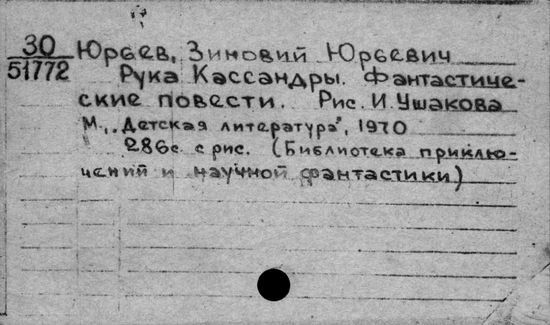 30 Юрьев, Зиновий Юрьевич
51772 Рука Кассандры. Фантастиче-
ские повести. Рис. И. Ушакова
М., „Детская литература", 1970
286с. с рис. (Библиотека приклю-
чений и научной фантастики)